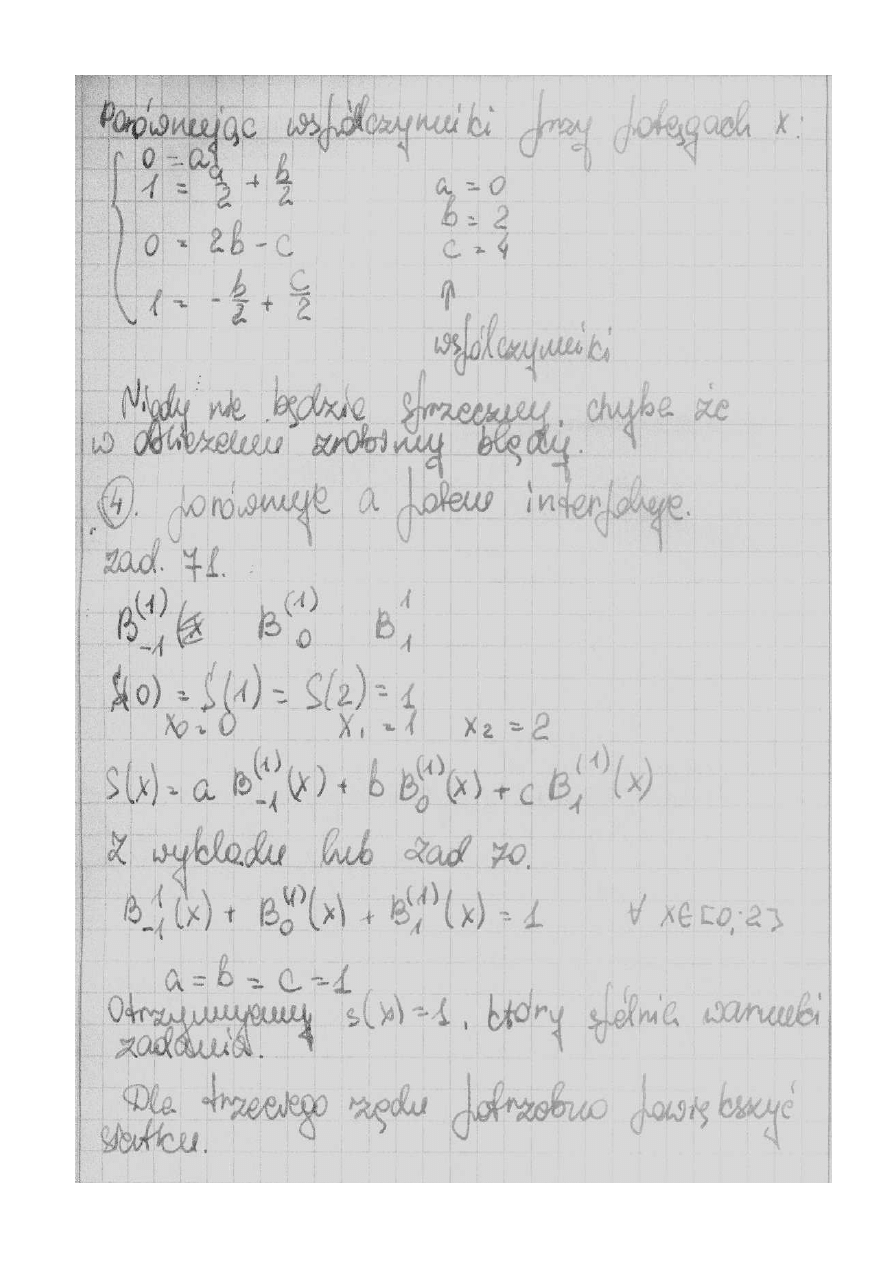 Porównując współczynniki przy potęgach x:
0 = a
1 = a/2 + b/2    a = 0
b = 2
0 = 2b - c    c = 4
1 = -b/2 + c/2    ↑
współczynniki
Nigdy nie będzie sprzeczny, chyba że
w obliczeniu zrobimy błędy.
④. porównuje a potem interpoluje.
zad. 71.
B₋₁⁽¹⁾    B₀⁽¹⁾    B₁¹
S(0) = S(1) = S(2) = 1
x₀ = 0    x₁ = 1    x₂ = 2
S(x) = a B₋₁⁽¹⁾(x) + b B₀⁽¹⁾(x) + c B₁⁽¹⁾(x)
Z wykładu lub zad 70.
B₋₁¹(x) + B₀⁽¹⁾(x) + B₁⁽¹⁾(x) = 1    ∀ x∈[0;2]
a = b = c = 1
Otrzymujemy s(x) = 1, który spełnia warunki
zadania.
Dla trzeciego rzędu potrzebno powiększyć
siatkę.